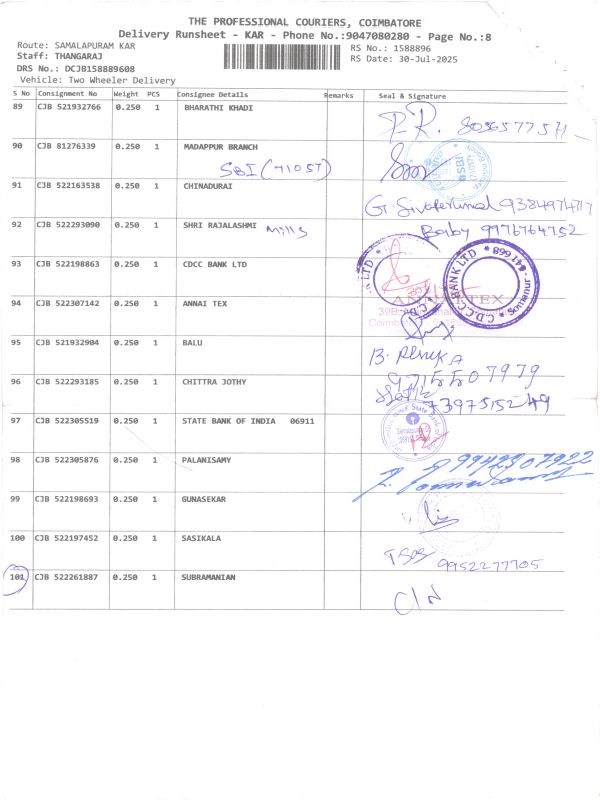 THE PROFESSIONAL COURIERS, COIMBATORE
Delivery Runsheet - KAR - Phone No.:9047080280 - Page No.:8
Route: SAMALAPURAM KAR
RS No.: 1588896
Staff: THANGARAJ
RS Date: 30-Jul-2025
DRS No.: DCJB158889608
Vehicle: Two Wheeler Delivery
S No Consignment No Weight PCS Consignee Details Remarks Seal & Signature
89 CJB 521932766 0.250 1 BHARATHI KHADI
P.R. 8056577571
90 CJB 81276339 0.250 1 MADAPPUR BRANCH
SBI (71057)
SBI
91 CJB 522163538 0.250 1 CHINADURAI
G. Sivaperumal 9384974717
92 CJB 522293090 0.250 1 SHRI RAJALASHMI Mills
Baby 9976764752
93 CJB 522198863 0.250 1 CDCC BANK LTD
LTD
C.D.C.C. BANK LTD * 641668 * Somanur *
94 CJB 522307142 0.250 1 ANNAI TEX
ANNAI TEX
95 CJB 521932904 0.250 1 BALU
B. Renuka
9715507979
96 CJB 522293185 0.250 1 CHITTRA JOTHY
7397515249
97 CJB 522305519 0.250 1 STATE BANK OF INDIA 06911
State Bank
98 CJB 522305876 0.250 1 PALANISAMY
9942307922
99 CJB 522198693 0.250 1 GUNASEKAR
100 CJB 522197452 0.250 1 SASIKALA
9952277705
101 CJB 522261887 0.250 1 SUBRAMANIAN
C/N